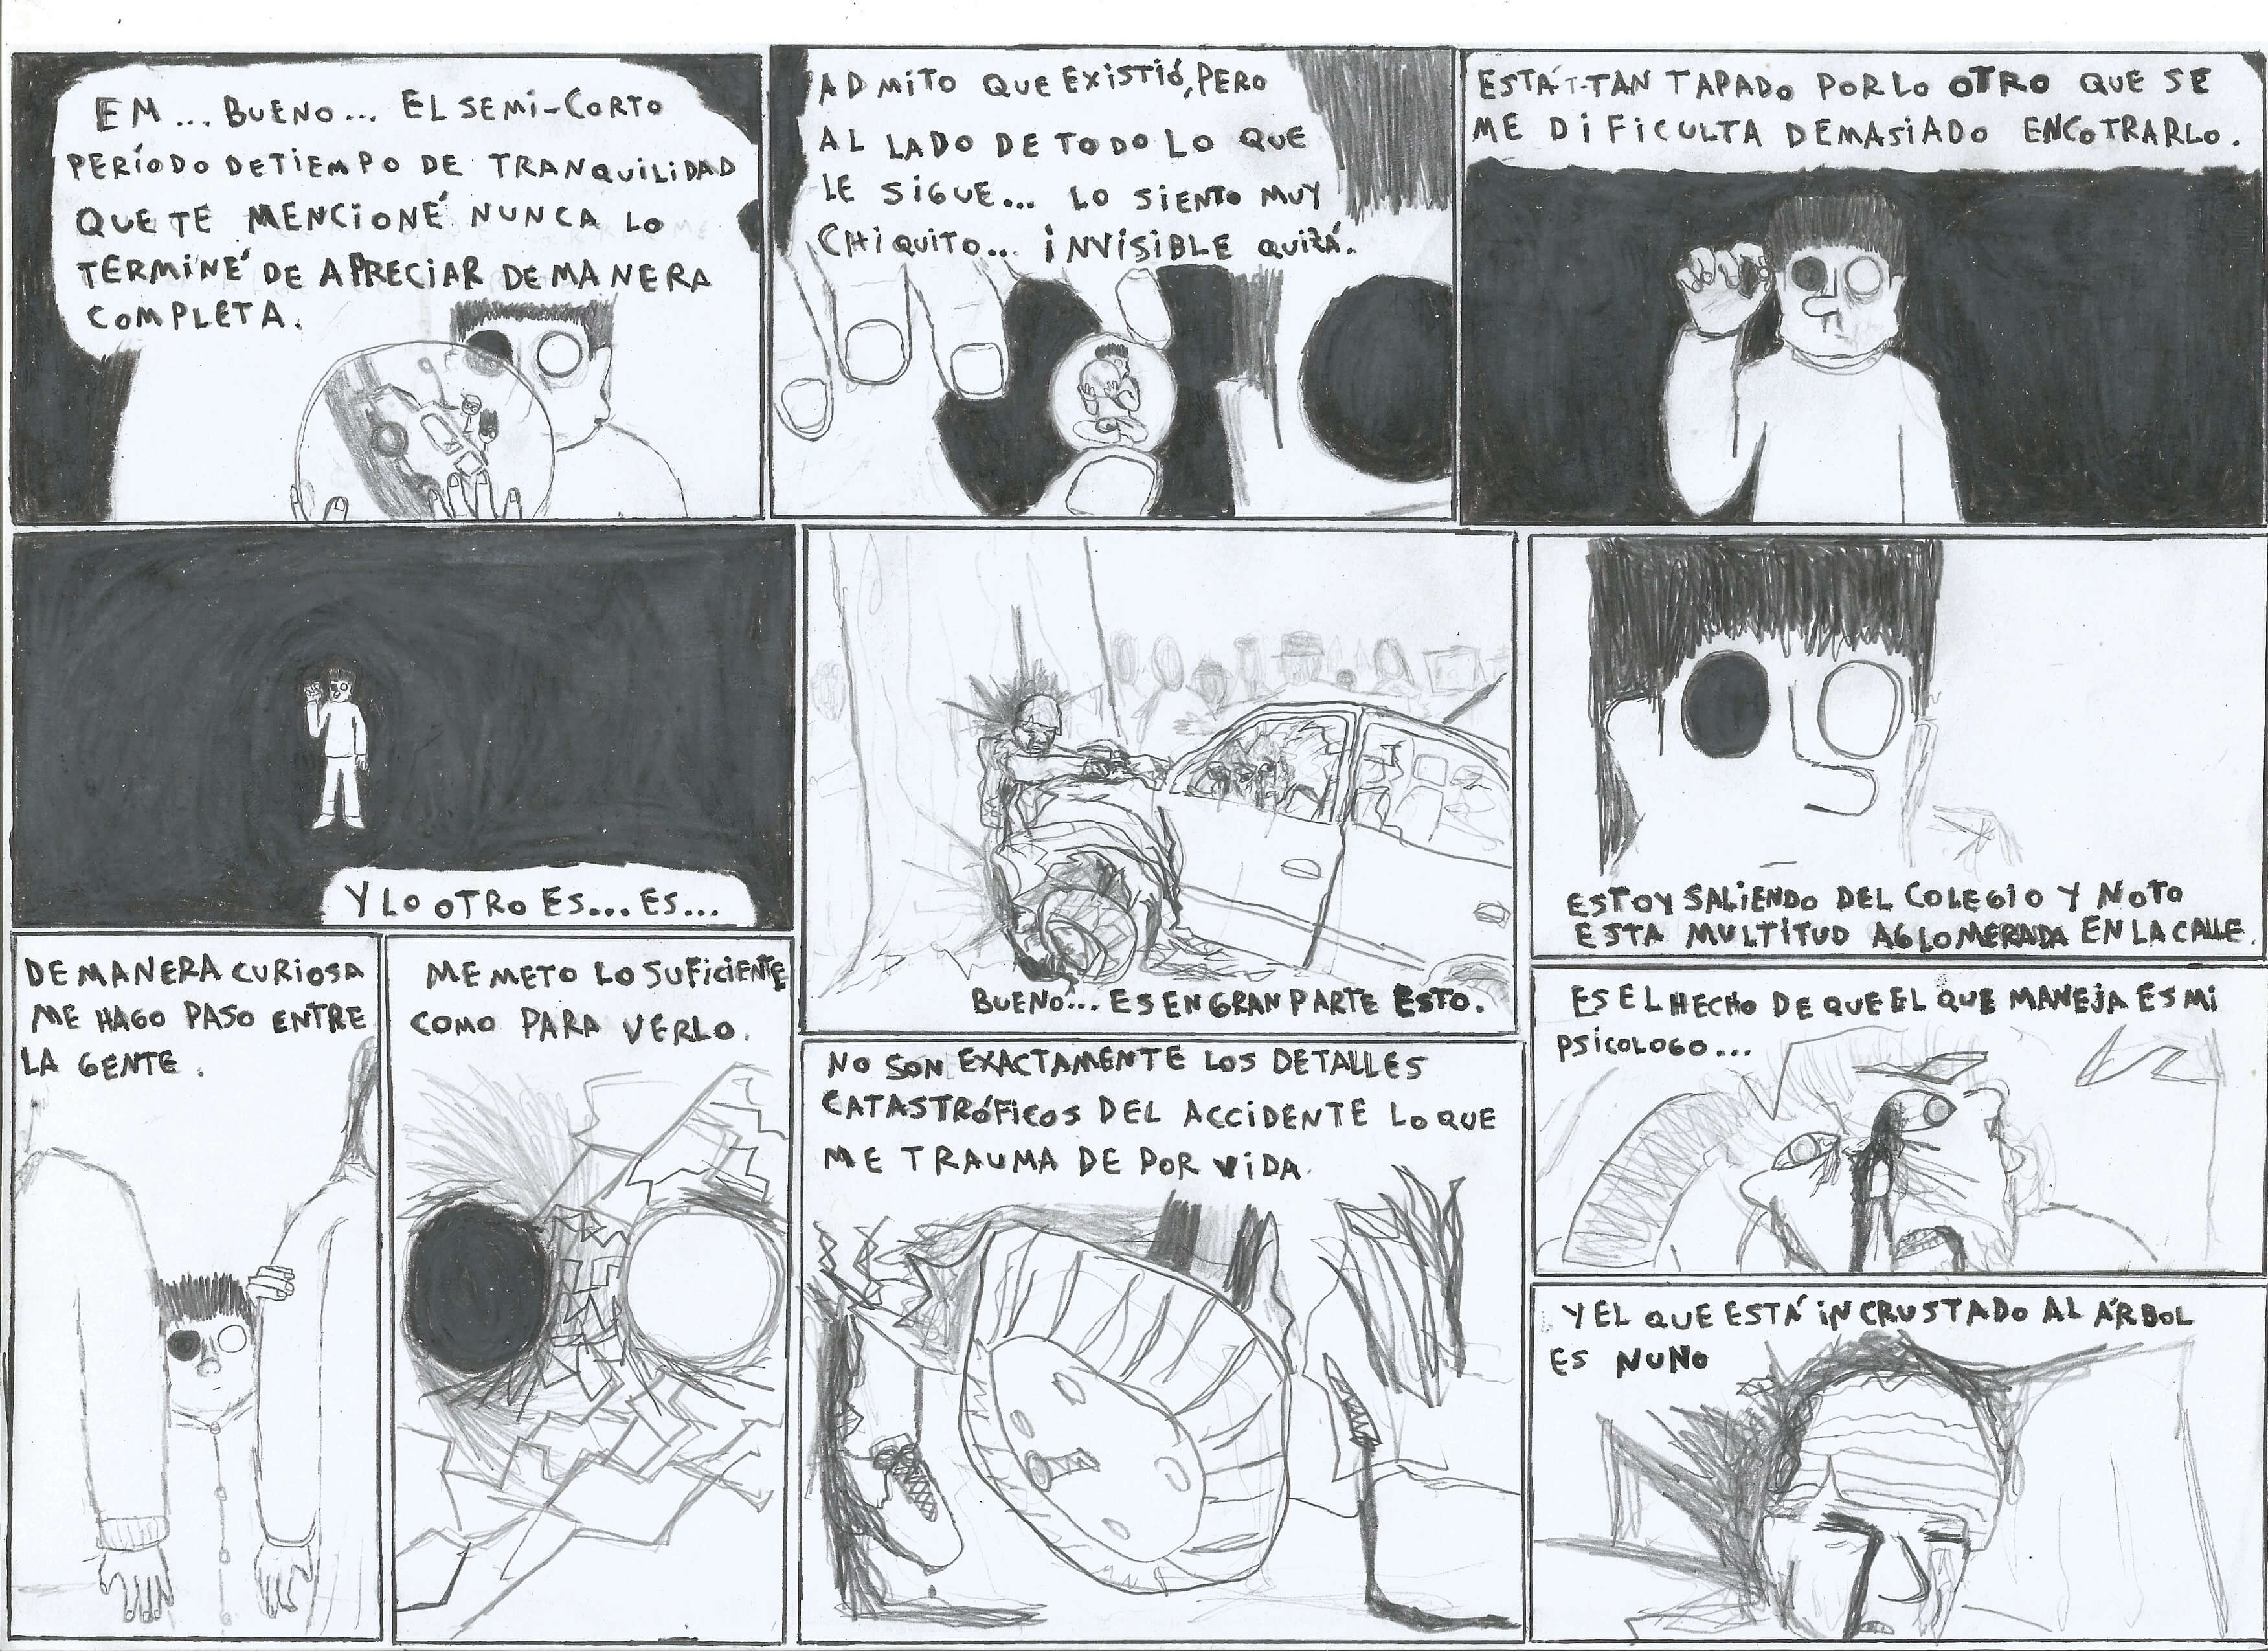 EM... BUENO... EL SEMI-CORTO
PERÍODO DE TIEMPO DE TRANQUILIDAD
QUE TE MENCIONÉ NUNCA LO
TERMINÉ DE APRECIAR DE MANERA
COMPLETA.
ADMITO QUE EXISTIÓ, PERO
AL LADO DE TODO LO QUE
LE SIGUE... LO SIENTO MUY
CHIQUITO... INVISIBLE QUIZÁ.
ESTÁ T-TAN TAPADO POR LO OTRO QUE SE
ME DIFICULTA DEMASIADO ENCOTRARLO.
Y LO OTRO ES... ES...
BUENO... ES EN GRAN PARTE ESTO.
ESTOY SALIENDO DEL COLEGIO Y NOTO
ESTA MULTITUD AGLOMERADA EN LA CALLE.
DE MANERA CURIOSA
ME HAGO PASO ENTRE
LA GENTE.
ME METO LO SUFICIENTE
COMO PARA VERLO.
NO SON EXACTAMENTE LOS DETALLES
CATASTRÓFICOS DEL ACCIDENTE LO QUE
ME TRAUMA DE POR VIDA.
ES EL HECHO DE QUE EL QUE MANEJA ES MI
PSICOLOGO...
Y EL QUE ESTÁ INCRUSTADO AL ÁRBOL
ES NUNO